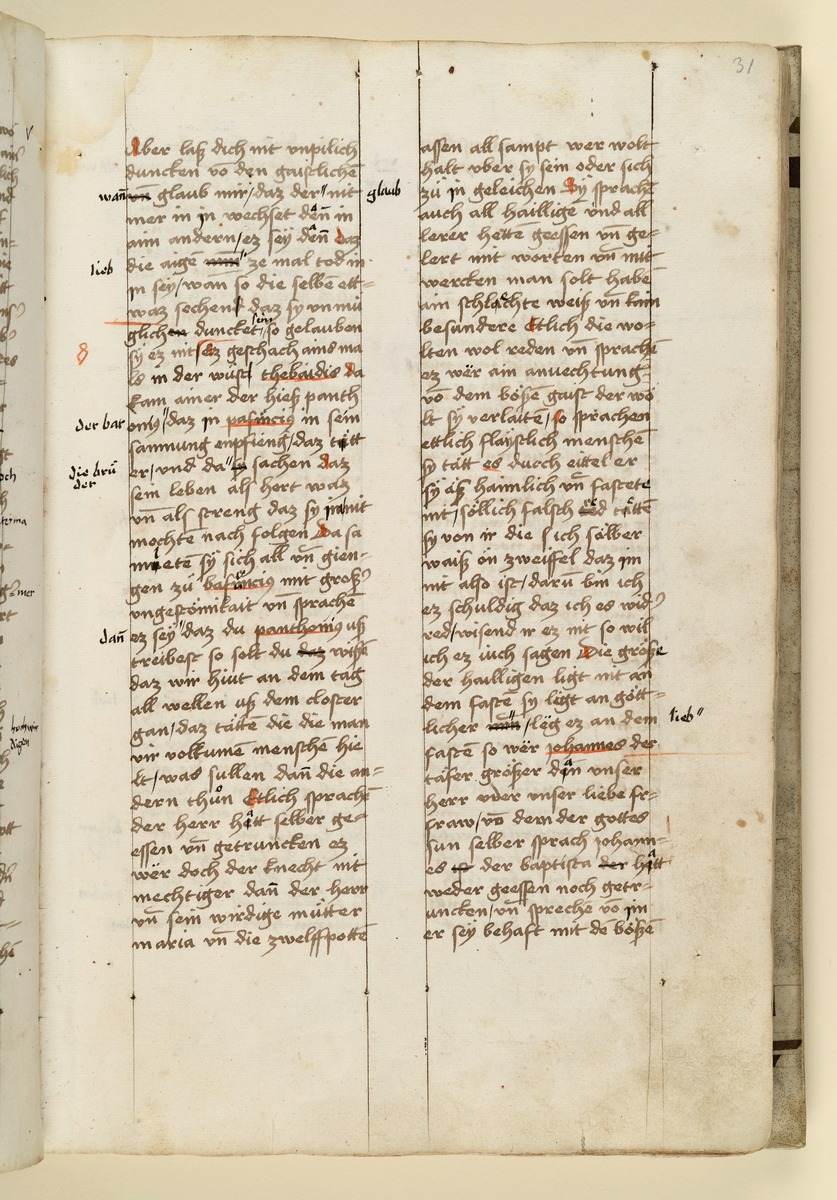 31
Aber laß dich nit vnpilich
duncken vō den gaistlichē
wañ glaub mir / daz der" nit glaub
mer in jn wechset deñ in
aim andern / ez sey deñ daz
die aige ze mal tod in
lieb
jn sey / wan so die selben ett=
waz sechent daz sy vnmü
glichen duncket / so gelauben
sein
sy ez nit Ez geschach ains ma
ls in der wüst thebaidis da
kam ainer der hieß panth
oniꝰ / daz jn pafuncius in sein
der bat
samnung enpfieng / daz tätt
er / vnd da" sachen daz
die brü
der
sein leben als hert waz
vñ als streng daz sy jm nit
mochte nach folgen Da sa
mneten sy sich all vñ gien=
gen zů bafuncius mit groß
vngestömikait vñ sprachē
ez sey" daz du panthoniꝰ uß
dañ
treibest so solt du daz wisse
daz wir hiut an dem tag
all wellen uß dem closter
gan / daz tätten die die man
vir volkumē menschē hie
lt / was sullen dañ die an=
dern thůn Etlich sprachē
der herr hätt selber ge=
essen vñ getruncken ez
wër doch der knecht nit
mechtiger dañ der herr
vñ sein wirdige můtter
maria vñ die zwelffpottē
assen all sampt wer wolt
halt vber sy sein oder sich
zů jn geleichen Sy sprachē
auch all hailligē vnd all
lerer hettē geessen vñ ge=
lert mit worten vñ mitt
wercken man solt habē
ain schlächte weiß vñ kain
besundere Etlich die wo=
lten wol reden vñ sprachē
ez wër ain anuechtung
vō dem bößen gaist der wo
lt sy verlaiten / so sprachen
ettlich flayschlich menschē
sy tätt es durch eittel er
sy äß haimlich vñ fastete
nit / söllich falsch red tättē
sy von ir die sich sölber
waiß on zweiffel daz im
nit also ist / darū bin ich
ez schuldig daz ich es wid
red / wisend ir ez nit so wil
ich ez iuch sagen Die größe
der hailligen ligt nit an
dem fastē sy ligt an gött=
licher / leg ez an dem lieb"
fastē so wër johannes der
täfer größer dañ vnser
herr oder vnser liebe fr=
fraw / vō dem der gottes
sun selber sprach johann=
es der baptista der hätt
weder geessen noch getr=
uncken / vñ sprechē vō jm
er sey behaft mit dē bößē